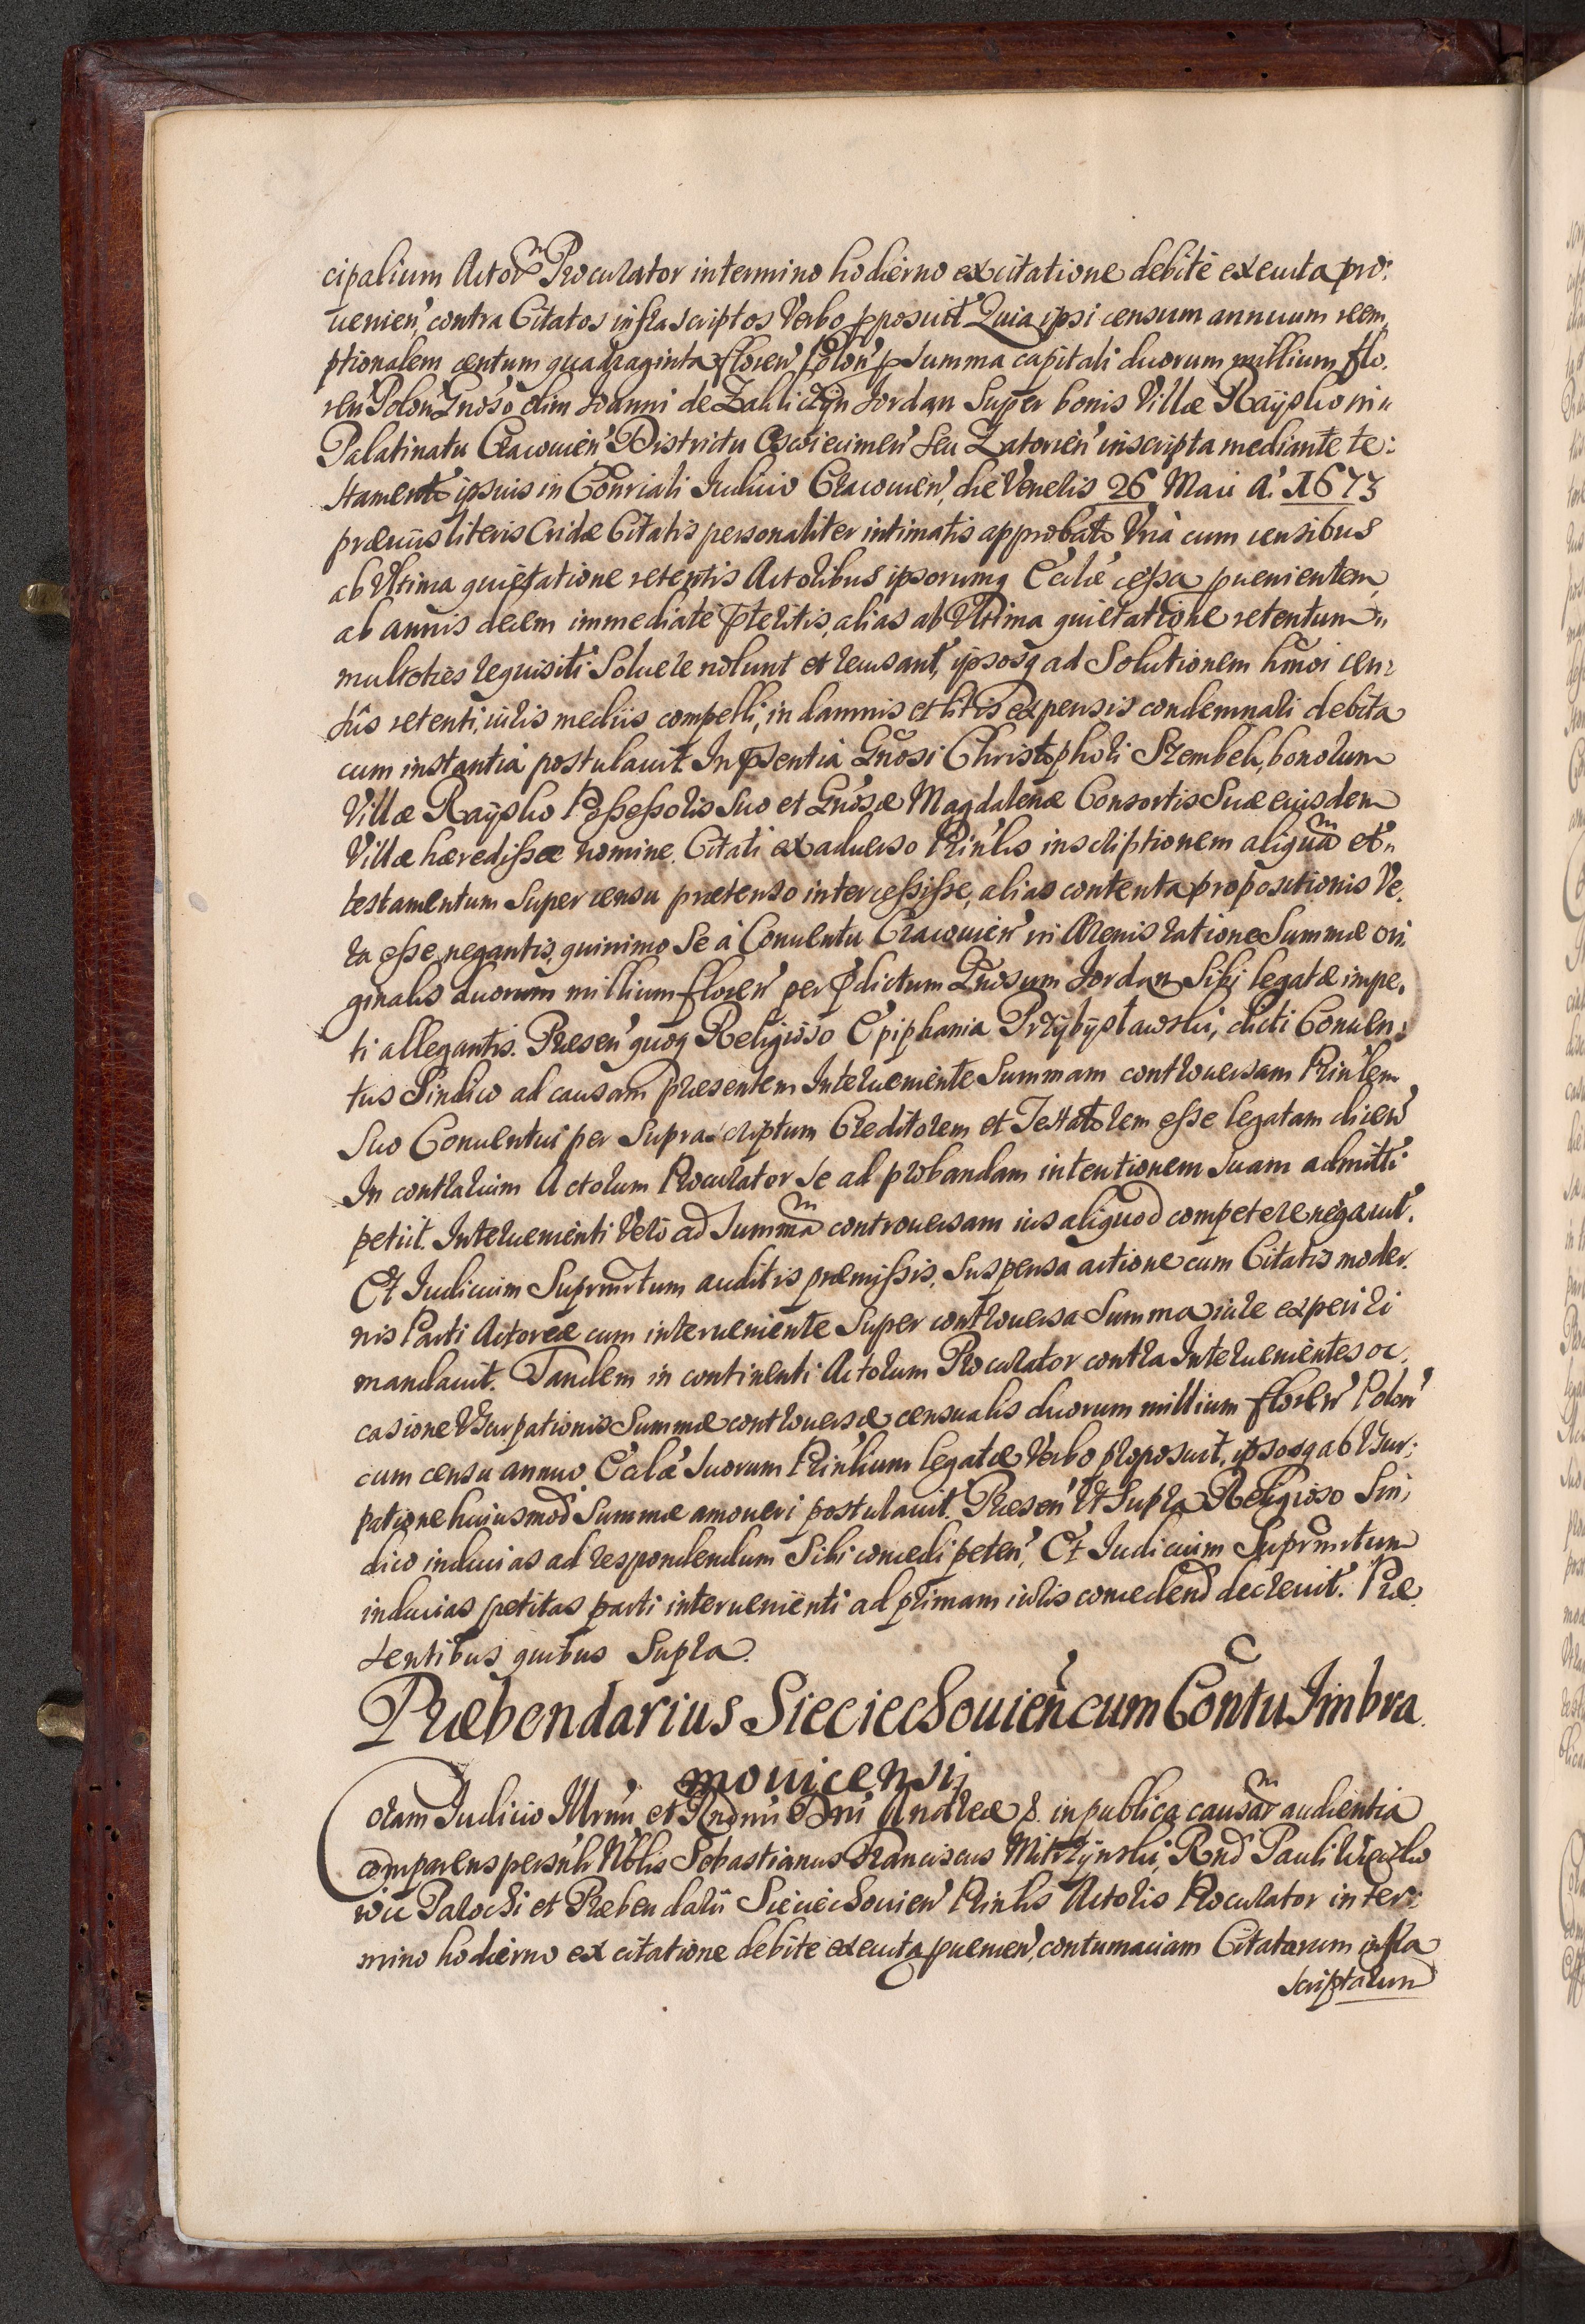 cipalium Actor Procurator in termino hodierno ex citatione debite executa pro:
uenien̄, contra Citatos infrascriptos Verbo pposuit Quia ipsi censum annuum reem
ptionalem centum quadraginta floren̄ Polon̄ p Summa capitali duorum millium flo.
ren̄ Polon̄ Gnoso olim Joanni de Zakliczyn Jordan Super bonis Villæ Raysko in
Palatinatu Cracouien̄ Districtu Oswiecimen̄ seu Zatorien̄ inscripta mediante te:
stamento ipsius in Consiali Judicio Cracouien̄, die Veneris 26 Maii A. 1673
præuiis literis Cridæ Citatis personaliter intimatis approbato Vnà cum censibus
ab Vltima quietatione retentis Actoribus ipsorumq Eccłæ cessa puenientem,
ab annis decem immediate pteritis, alias ab Vltima quietatione retentum
multoties requisiti Soluere nolunt et recusant, ipsosq ad Solutionem hm̄oi cen:
sûs retenti, iuris mediis compelli, in damnis et litis expensis condemnari debita
cum instantia postulauit. In psentia Gnosi Christophori Szembek, bonorum
Villæ Raysko Possessoris Suo et Gnosæ Magdalenæ Consortis Suæ eiusdem
Villæ hæredissæ nomine. Citati ex aduerso Prin̄lis inscriptionem aliquā et
testamentum Super censu prætenso intercessisse, alias contenta propositionis Ve.
ra esse negantis, quinimo Se à Conuentu Cracouien̄ in Arenis ratione Summæ ori.
ginalis duorum millium floren̄ per pdictum Gnosum Jordan Sibi legatæ impe.
ti allegantis. Presen̄ quoq Religioso Epiphania Przybysławski, dicti Conuen:
tus Sindico ad causam præsentem Interueniente Summam controuersam Prin̄lem
Suo Conuentui per Suprascriptum Creditorem et Testatorem esse legatam dicen̄
In contrarium Actorum Procurator Se ad probandam intentionem suam admitti
petiit. Interuenienti Vero ad Summā controuersam ius aliquod competere negauit.
Et Judicium Suprmrtum auditis præmissis, Suspensa actione cum Citatis moder.
nis Parti Actoreæ cum interueniente Super controuersa Summa iure experiri
mandauit. Tandem in continenti Actorum Procurator contra Interuenientes oc.
casione Vsurpationis Summæ controuersæ censualis duorum millium floren̄ Polon̄
cum censu annuo Eccłæ Suorum Prin̄lium legatæ Verbo proposuit, ipsosq ab Vsur:
patione huiusmod̄ Summæ amoueri postulauit. Presen̄ Vt Supra Religioso Sin:
dico inducias ad respondendum Sibi concedi peten̄, Et Judicium Suprmrtum
inducias petitas parti interuenienti ad primam iuris concedend̄ decreuit. Præ
sentibus quibus Supra.
Præbendarius Sieciechouien̄ cum Con̄tu Imbra.
mouicensi
Coram Judicio Illrmi et Rndmi Dn̄i Andreæ p. in publica causar audientia
comparens persn̄lr Nb̄lis Sebastianus Franciscus Mitrzynski, Rnd̄ Pauli
wic Parochi et Præbendarii Sieciechouien̄ Prin̄lis Actoris Procurator in ter:
mino hodierno ex citatione debite executa puenien̄, contumaciam Citatarum infra
scriptarum